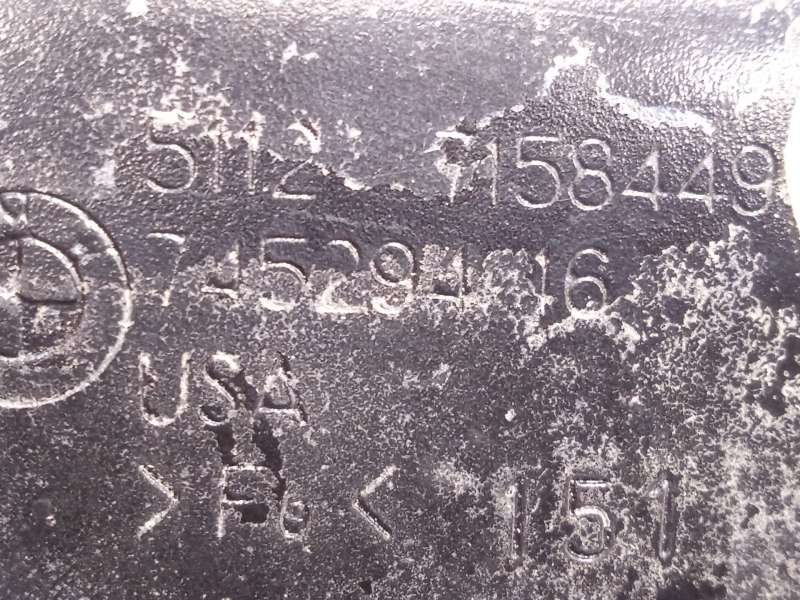 5112 7158449
7452944 16
USA
>Fe< 151